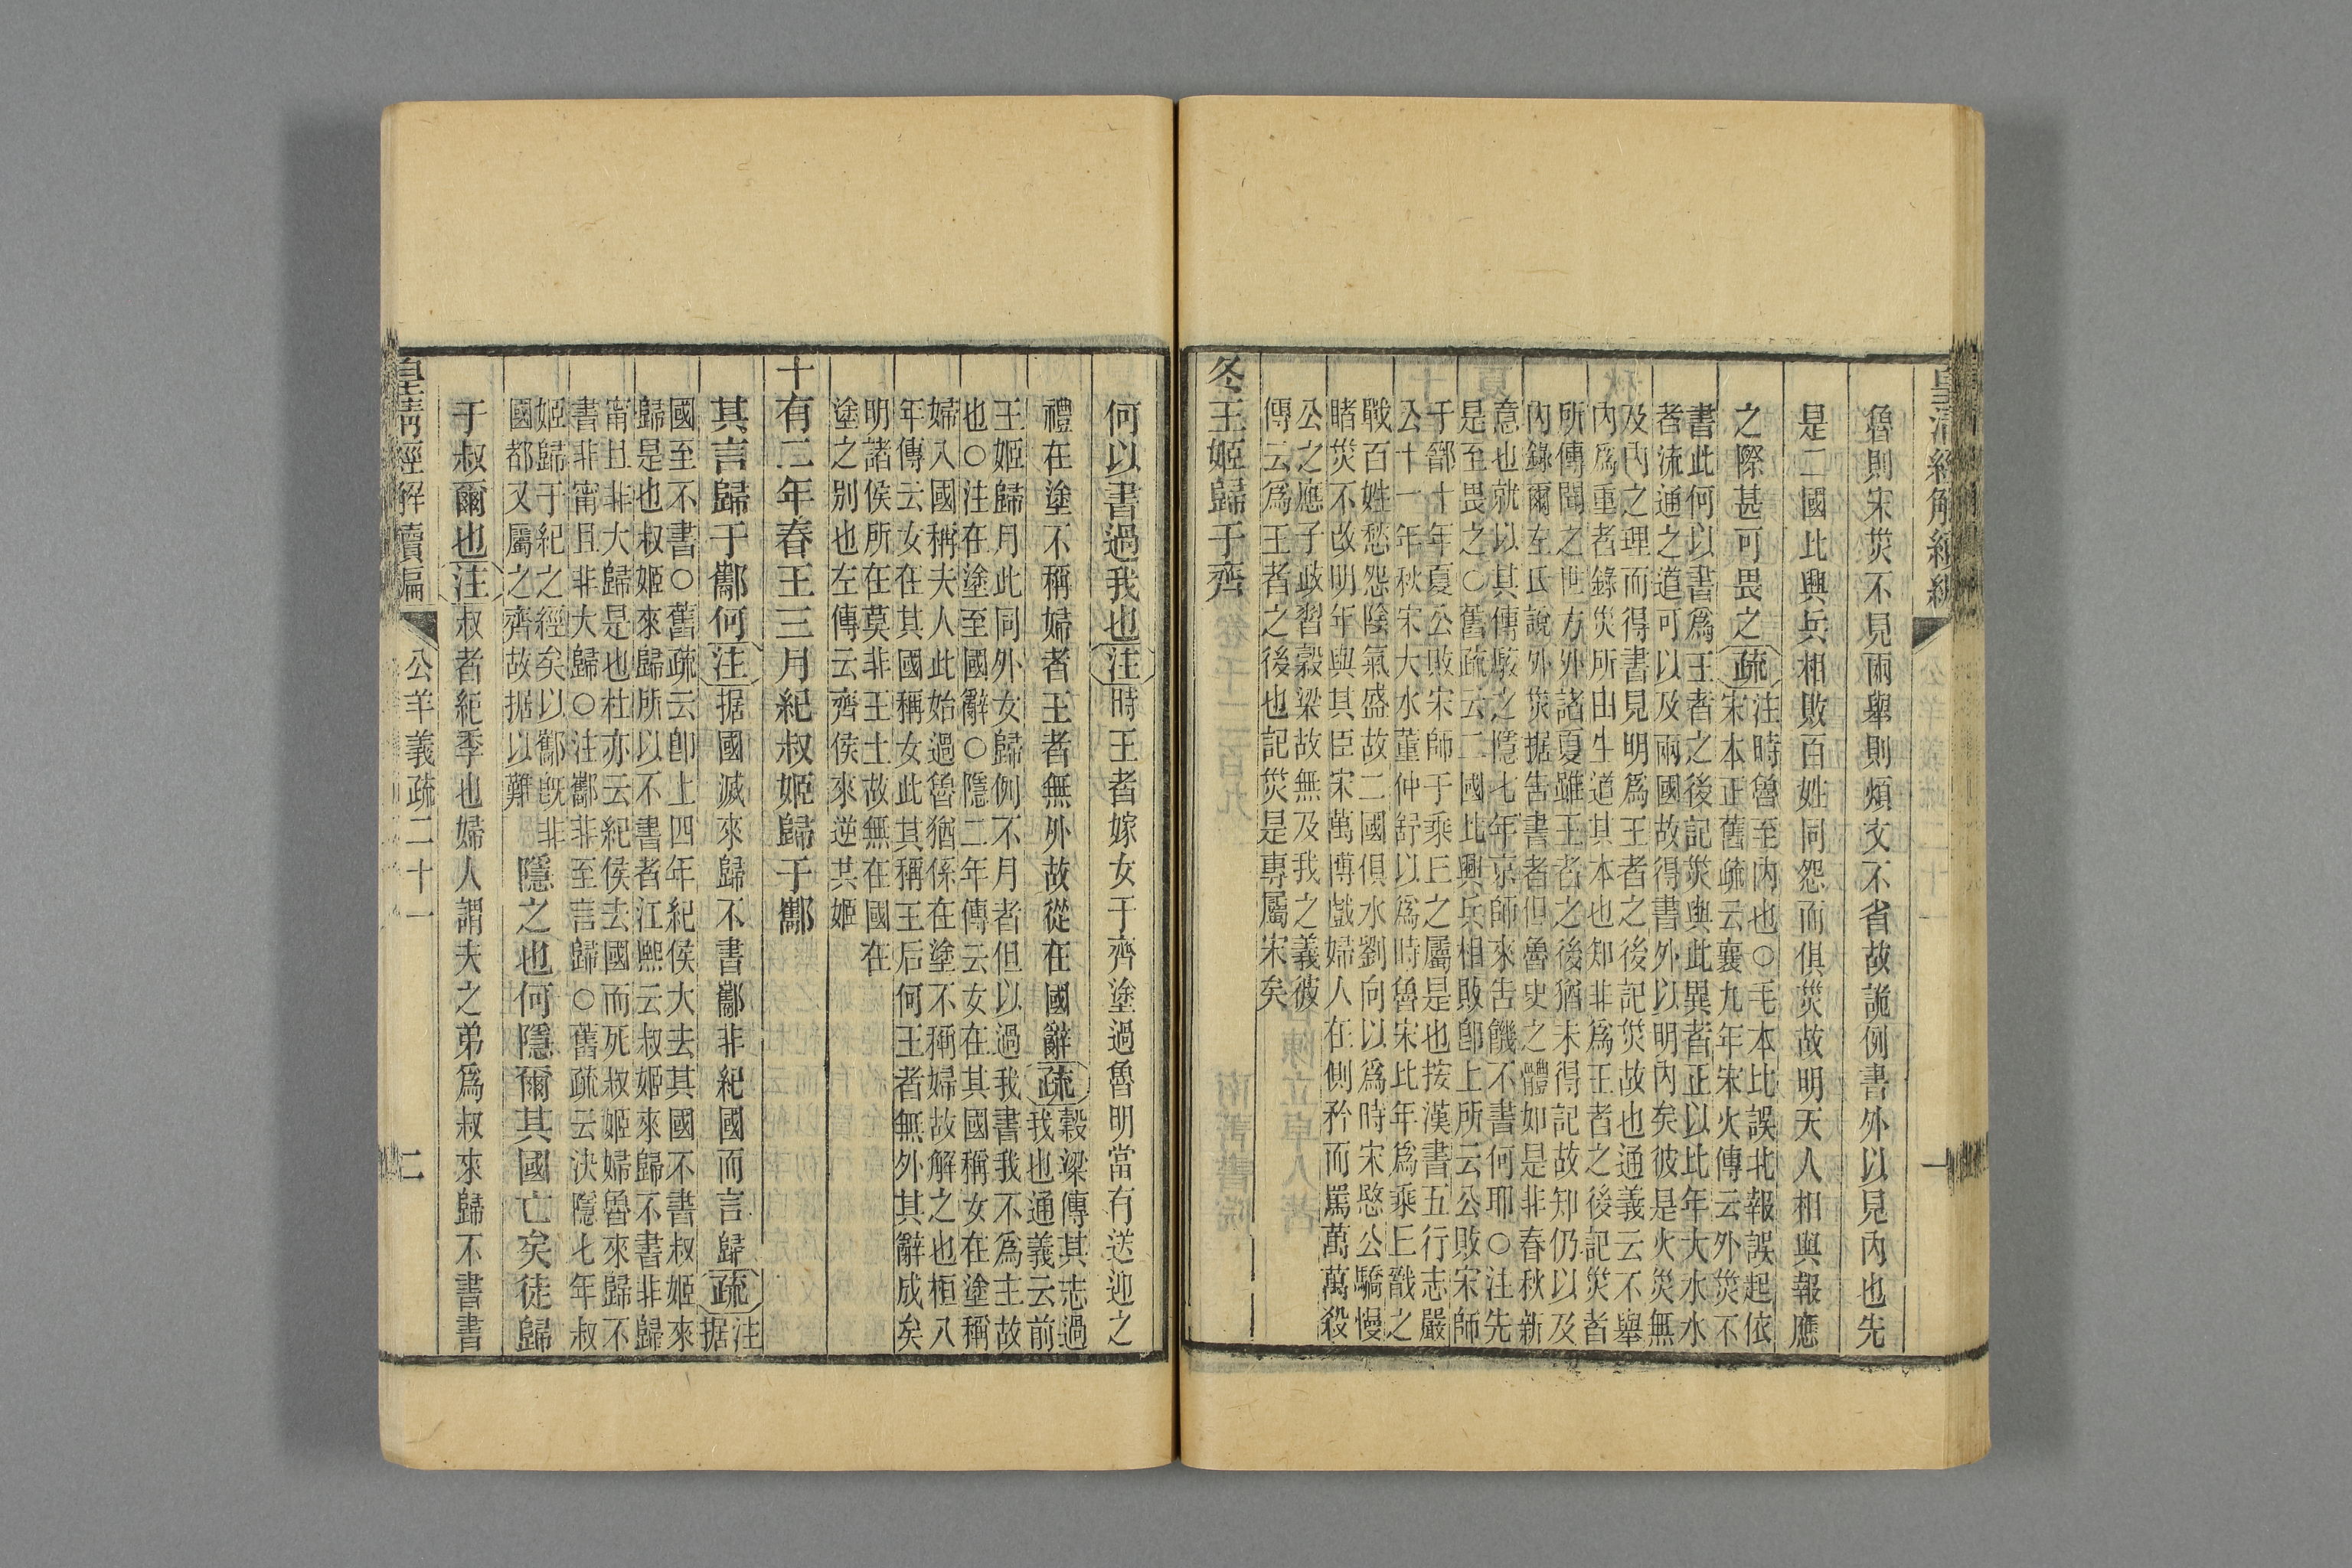 皇清經解續編
魯則宋災不見兩舉則煩文不省故詭例書外以見內也先
是二國比興兵相敗百姓同怨而俱災故明天人相與報應
之際甚可畏之疏
注時魯至內也○毛本比誤北報誤起依
宋本正舊疏云襄九年宋火傳云外災不
書此何以書為王者之後記災與此異者正以比年大水水
者流通之道可以及兩國故得書外以明內矣彼是火災無
及內之理而得書見明為王者之後記災故也通義云不舉
內為重者錄災所由生道其本也知非為王者之後記災者
所傳聞之世方外諸夏雖王者之後猶未得記故知仍以及
內錄爾左氏說外災据告書者但魯史之體如是非春秋新
意也就以其傳駁之隱七年京師來告饑不書何耶○注先
是至畏之○舊疏云二國比興兵相敗卽上所云公敗宋師
于鄑十年夏公敗宋師于乘丘之屬是也按漢書五行志嚴
公十一年秋宋大水董仲舒以為時魯宋比年為乘丘戬之
戰百姓愁怨陰氣盛故二國俱水劉向以為時宋愍公驕慢
睹災不改明年與其臣宋萬博戲婦人在側矜而罵萬萬殺
公之應子政習穀梁故無及我之義彼
傳云為王者之後也記災是專屬宋矣
冬王姬歸于齊
何以書過我也注時王者嫁女于齊塗過魯明當有送迎之
禮在塗不稱婦者王者無外故從在國辭疏
穀梁傳其志過
我也通義云前
王姬歸月此同外女歸例不月者但以過我書我不為主故
也○注在塗至國辭○隱二年傳云女在其國稱女在塗稱
婦入國稱夫人此始過魯猶係在塗不稱婦故解之也桓八
年傳云女在其國稱女此其稱王后何王者無外其辭成矣
明諸侯所在莫非王土故無在國在
塗之別也左傳云齊侯來逆共姬
十有二年春王三月紀叔姬歸于酅
其言歸于酅何注据國滅來歸不書酅非紀國而言歸疏
注
据
國至不書○舊疏云卽上四年紀侯大去其國不書叔姬來
歸是也叔姬來歸所以不書者江熙云叔姬來歸不書非歸
甯且非大歸是也杜亦云紀侯去國而死叔姬婦魯來歸不
書非甯且非大歸○注酅非至言歸○舊疏云決隱七年叔
姬歸于紀之經矣以酅旣非
國都又屬之齊故据以難
隱之也何隱爾其國亡矣徒歸
于叔爾也注叔者紀季也婦人謂夫之弟為叔來歸不書書
皇清經解續編
公羊義疏二十一
二